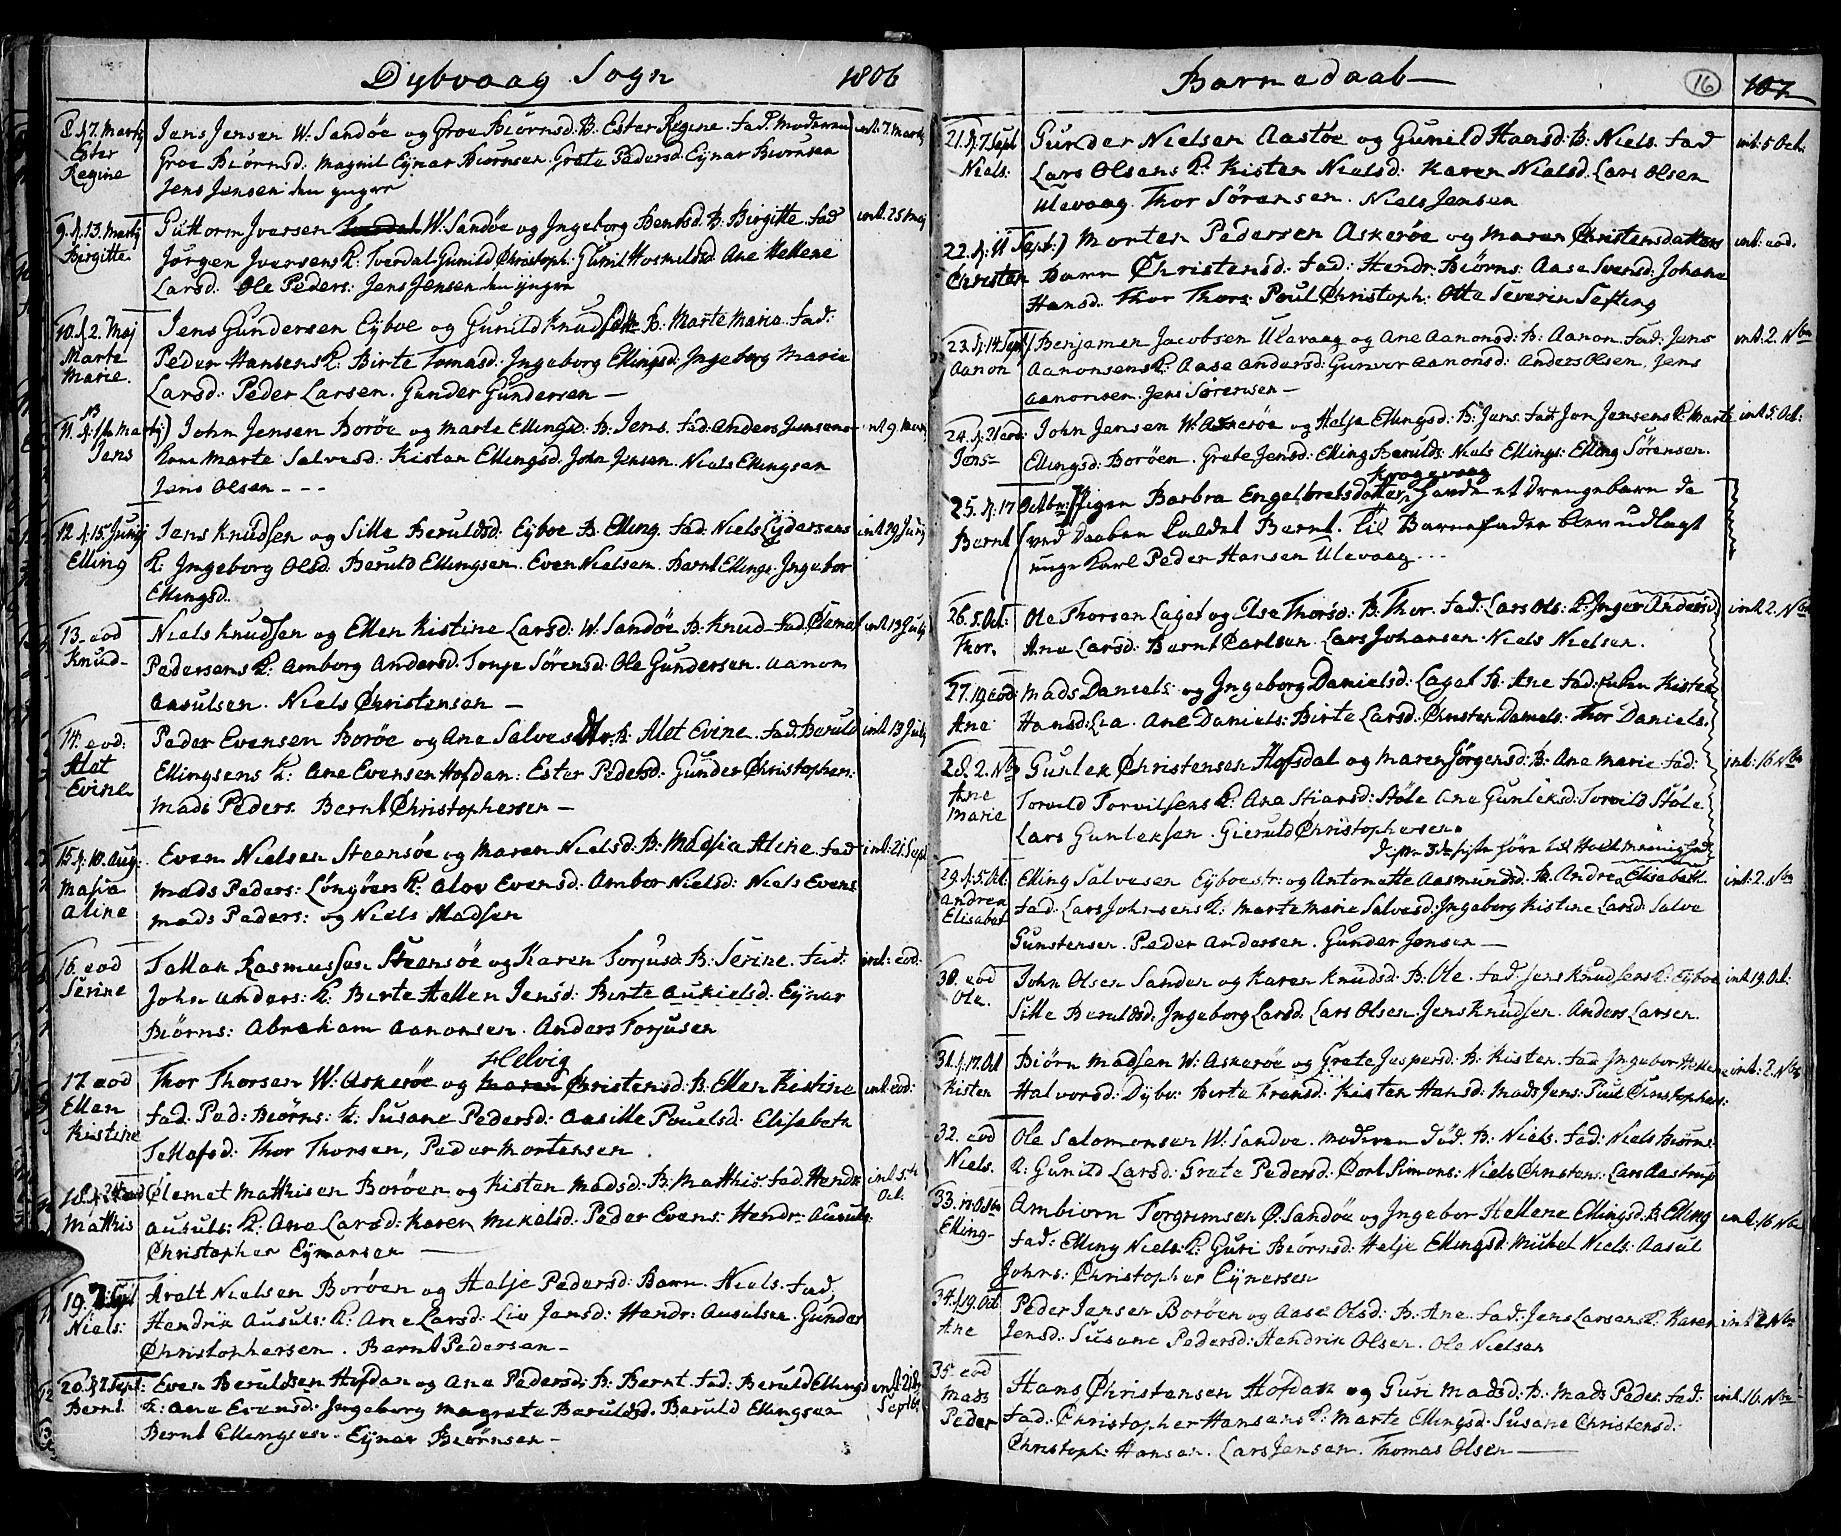 Dybvaag Sogn 1806
8. d. 7. Martj Jens Jensen W. Sandöe og Groe Biörnsd. B. Ester Regine. Fad. Moderen int. 7. Martj
Ester Groe Biörnsd. Magnil Eynar Biörnsen. Grete Pedersd. Eynar Biörnsen
Regine Jens Jensen den yngre
9. d. 13. Martj Guttorm Iversen W. Sandöe og Ingeborg Bentsd. B. Birgitte. Fad int. 25 Maj
Birgitte Jörgen Iversens K. Tverdal Gunild Christoph. Gunil Hosmildsd. Ane Hellene
Larsd. Ole Peders. Jens Jensen den yngre
10. d. 2. Maj Jens Gundersen Eyboe og Gunild Knudsdtr. B. Marte Marie. Fad:
Marte Peder Hansens K. Birte Tomasd. Ingeborg Ellingsd. Ingeborg Marie
Marie. Larsd. Peder Larsen. Gunder Gundersen —
11. d. 13 Martj) John Jensen Boröe og Marte Ellingsd. B. Jens. Fad. Anders Jensens int. 9. Martj
Jens Kone Marte Salvesd. Kisten Ellingsd. John Jensen. Niels Ellingsen
Jens Olsen - - -
12. d. 15. Junij Jens Knudsen og Sille Beruldsd. Eyboe B. Elling. Fad. Niels Lydersens int. 29. Junij
Elling K. Ingeborg Olsd. Beruld Ellingsen. Even Nielsen. Bernt Ellings. Ingebor
Ellingsd.
13. eod Niels Knudsen og Ellen Kistine Larsd: W. Sandöe B. Knud Fad. Clemet int. 13 Julij
Knud- Pedersens K. Amborg Andersd. Tonje Sörensd. Ole Gundersen. Aanon
Aasulsen. Niels Christensen —
14. eod: Peder Evensen Boröe og Ane Salvesdtr. B. Alet Evine. Fad. Beruld int. 13 Julij
Alet Ellingsens K: Ane Evensen Hofdan: Ester Pedersd. Gunder Christophers:
Evine Mads Peders. Bernt Christophersen —
15. d. 10. Aug. Even Nielsen Steensöe og Maren Nielsd. B. Madsia Aline. Fad int. 21 Sept
Masia Mads Peders: Löngöers K. Alov Evensd. Ambor Nielsd: Niels Evens
Aline Mads Peders: og Niels Madsen
16. eod Tallak Rasmussen Steensöe og Karen Torjusd. B. Serine. Fad: int. eod:
Serine John Anders: K. Berte Hellen Jensd: Berte Aukielsd. Eynar
Biörns: Abraham Aanonsen. Anders Torjusen
Helvig
17. eod Thor Thorsen W. Askeröe og Maren Christensd: B. Ellen Kistine int. eod:
Ellen Fad. Ped: Biörns: K. Susane Pedersd: Aasille Pouelsd: Elisabeth
Kistine Tellofsd: Thor Thorsen, Peder Mortensen
18. Clemet Mathisen Boröen og Kisten Madsd. B. Mathis. Fad. Hendr int 5te
Mathis Ausuls: K. Ane Larsd: Karen Mikelsd. Peder Evens: Hendr: Ausuls: Oct.
Christopher Eynersen —
19. 7. Sept Aralt Nielsen Boröen og Helje Pedersd: Barn. Niels. Fad,
Niels: Hendrik Ausuls: K: Ane Larsd: Liv Jensd: Hendr: Ausulsen. Gunder
Christophersen. Bernt Pedersen —
20. d. 7 Sept: Even Beruldsen Hofdan og Ane Pedersd: B: Bernt. Fad: Beruld Ellings int. 21de
Bernt K: Ane Evensd: Ingeborg Magrete Beruldsd. Beruld Ellingsen Septbr
Bernt Ellingsen. Eynar Biörnsen —
Barnedaab — 16 107
21. d. 7 Sept Gunder Nielsen Aastöe og Gunild Hansd: B: Niels. Fad int. 5 Oct.
Niels: Lars Olsens K. Kisten Nielsd: Karen Nielsd. Lars Olsen
Ulevaag. Thor Sörensen. Niels Jensen
22. d. 11 Sept:) Morten Pedersen Askeröe og Maren Christensdatters int: eod.
Christen Barn Christensd. Fad: Hendr: Biörns: Aase Svensd: Johane
Hansd: Thor Thors: Poul Christoph: Otto Severin Sefting
23. d. 14 Sept/ Benjamin Jacobsen Ulevaag og Ane Aanonsd: B: Aanon. Fad: Jens int. 2. Nbr
Aanon Aanonsens K: Aase Andersd: Gunvor Aanonsd: Anders Olsen. Jens
Aanonsen. Jens Sörensen —
24. d. 21 eod. John Jensen W. Askeröe og Helje Ellingsd: B: Jens. Fad Jon Jensens K: Marte int. 5 Oct:
Jens- Ellingsd: Boröen. Grete Jensd: Elling Berulds: Niels Ellings: Elling Sörensen.
Krogevaag
25. d. 17 Octbr: Pigen Barbra Engelbretsdatter, havde et Drengebarn da
Bernt ved Daaben kaldet Bernt. Til Barnefader blev udlagt
unge Karl Peder Hansen Ulevaag ...
26. 5. Oct: Ole Thorsen Laget og Else Thorsd: B: Thor. Fad: Lars Ols: K: Inger Andersd int. 2. Nbr
Thor. Ane Larsd: Bernt Carlsen. Lars Johansen. Niels Nielsen.
27. 19. eod: Mads Daniels og Ingeborg Danielsd: Laget B: Ane Fad: Kisten
Ane Hansd: Lia. Ane Daniels: Birte Larsd: Christen Daniels: Thor Daniels.
28. 2. Nbr Gunlek Christensen Hofsdal og Maren Jörgensd: B: Ane Marie Fad: int: 16 Nbr
Ane Torvild Torvilsens K: Ane Stiansd: Støle Ane Gunleksd: Torvild Støle
Marie Lars Gunleksen. Gieruld Christophersen.
Disse 3de sidste hörer til Holt Meenighed
29. d. 5. Oct. Elling Salvesen Eyboestr: og Antonette Aasmundsd. B. Andrea Elisabeth int: 2. Nbr
Andrea Fad. Lars Johnsens K: Marte Marie Salvesd: Ingeborg Kistine Larsd: Salve
Elisabet Gunstensen. Peder Andersen. Gunder Jensen —
30. eod John Olsen Sanden og Karen Knudsd: B: Ole. Fad: Jens Knudsens K: Eyboe int. 19. Oct:
Ole. Sille Beruldsd: Ingeborg Larsd. Lars Olsen. Jens Knudsen. Anders Larsen.
31. d. 17. Oct Biörn Madsen W: Askeröe og Grete Jespersd: B: Kisten. Fad Ingebor Hellene int: 2. Nbr
Kisten Halvorsd: Dybv: Berte Fransd: Kisten Hansd: Mads Jens: Poul Christophers:
32. eod Ole Salomonsen W. Sandoe. Moderen död. B: Niels. Fad: Niels Biörns:
Niels. K: Gunild Larsd: Grete Pedersd: Simons: Niels Christens: Lars Aastrup
33. Ambiorn Torgrimsen Ö. Sandöe og Ingebor Hellene Ellingsd: B: Elling int. 16 Nbr
Elling- Fad: Elling Niels: K: Guri Biörnsd: Helje Ellingsd: Mikel Niels: Aasul
Johns: Christopher Eynersen
34. d. 19. Oct Peder Jensen Boröen og Aase Olsd: B: Ane. Fad: Jens Larsens K. Karen int 2. Nbr
Ane Jensd: Susane Pedersd: Hendrik Olsen. Ole Nielsen
35. eod Hans Christensen Hofdan og Guri Madsd: B: Mads Peder. Fad: int. 16. Nbr
Mads Fad: Christopher Hansens K: Marte Ellingsd: Susane Christensd:
Peder Christoph: Hansen. Lars Jensen. Thomas Olsen —